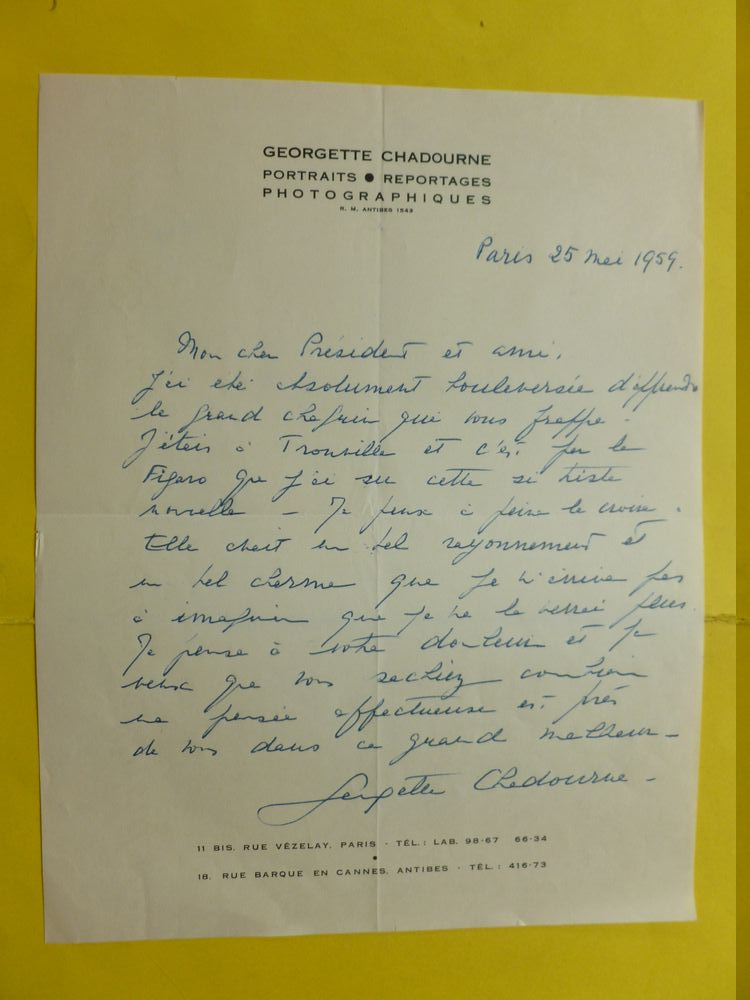 GEORGETTE CHADOURNE
PORTRAITS ● REPORTAGES
PHOTOGRAPHIQUES
R. M. ANTIBES 1543
Paris 25 mai 1959.
Mon cher Président et ami,
J'ai été absolument bouleversée d'apprendre
le grand chagrin qui vous frappe.
J'étais à Trouville et c'est par le
Figaro que j'ai su cette si triste
nouvelle - Je peux à peine le croire.
Elle avait un tel rayonnement et
un tel charme que je n'arrive pas
à imaginer que je ne la verrai plus.
Je pense à votre douleur et je
veux que vous sachiez combien
ma pensée affectueuse est près
de vous dans ce grand malheur -
Georgette Chadourne -
11 BIS. RUE VÉZELAY, PARIS - TÉL.: LAB. 98-67 66-34
●
18, RUE BARQUE EN CANNES, ANTIBES - TÉL.: 416-73